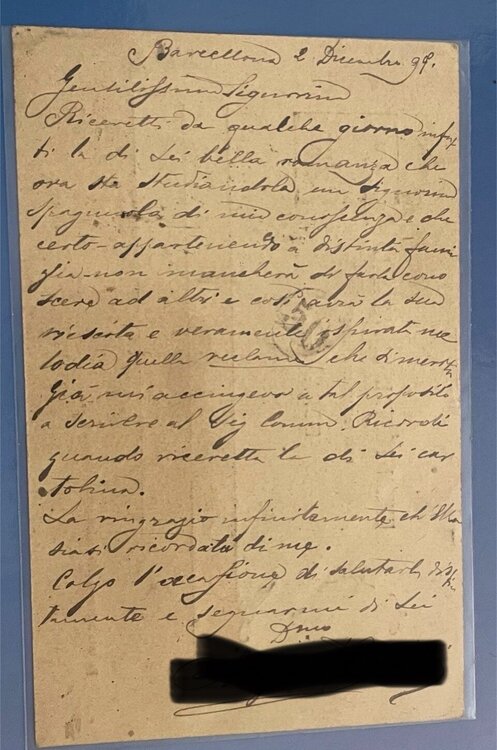 Barcellona 2 Dicembre 95.
Gentilissima Signorina
Ricevetti da qualche giorno infat
ti la di Lei bella romanza che
ora sta studiandola una Signorina
spagnuola di mia conoscenza e che
certo-appartenendo a distinta fami
glia-non mancherà di farla cono
scere ad altri e così avrà la sua
riescita e veramente ispirata me
lodia quella reclame che si merita
Già mi accingevo a tal proposito
a scrivere al Sig Comm. Ricordi
quando ricevetti la di Lei car
tolina.
La ringrazio infinitamente ch'Ella
siasi ricordata di me.
Colgo l'occasione di salutarla distin
tamente e segnarmi di Lei
Dmo